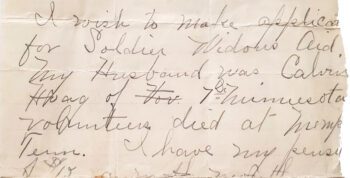 I wish to make applica
for Soldier Widows Aid.
My Husband was Calvin
Haag of Fov 7th Minnesota
volunteers died at Memp
Tenn. I have my pensi